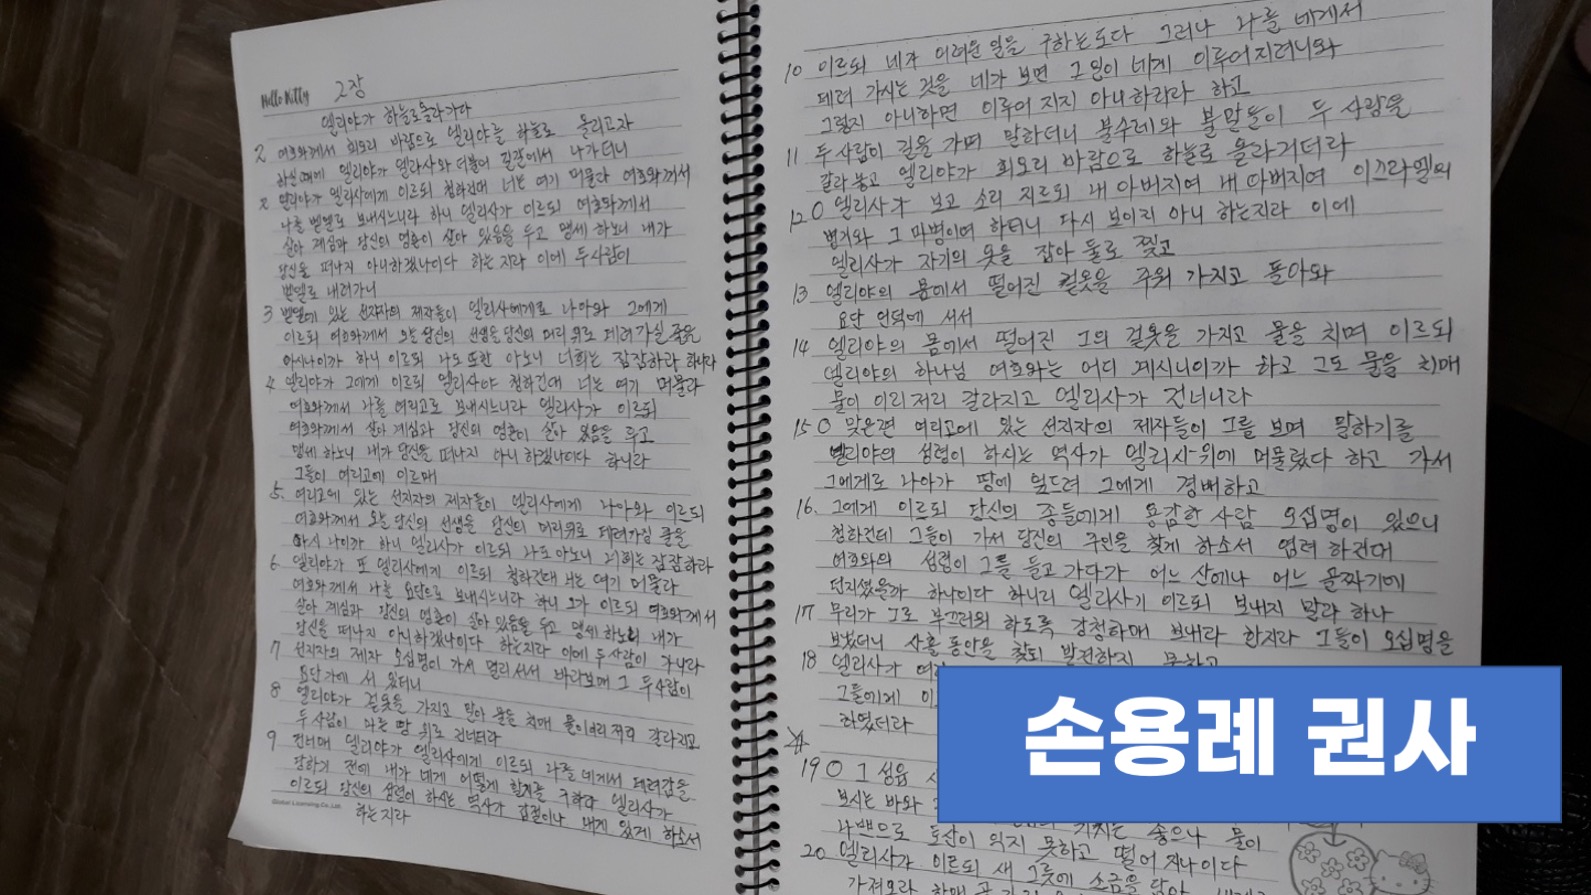 Hello Kitty
2장
엘리야가 하늘로 올라가다
2 여호와께서 회오리 바람으로 엘리야를 하늘로 올리고자
하실 때에 엘리야가 엘리사와 더불어 길갈에서 나가더니
2 엘리야가 엘리사에게 이르되 청하건대 너는 여기 머물라 여호와께서
나를 벧엘로 보내시느니라 하니 엘리사가 이르되 여호와께서
살아 계심과 당신의 영혼이 살아 있음을 두고 맹세 하노니 내가
당신을 떠나지 아니하겠나이다 하는지라 이에 두사람이
벧엘로 내려가니
3 벧엘에 있는 선지자의 제자들이 엘리사에게로 나아와 그에게
이르되 여호와께서 오늘 당신의 선생을 당신의 머리 위로 데려가실 줄을
아시나이까 하니 이르되 나도 또한 아노니 너희는 잠잠하라 하니라
4 엘리야가 그에게 이르되 엘리사야 청하건대 너는 여기 머물라
여호와께서 나를 여리고로 보내시느니라 엘리사가 이르되
여호와께서 살아 계심과 당신의 영혼이 살아 있음을 두고
맹세 하노니 내가 당신을 떠나지 아니 하겠나이다 하니라
그들이 여리고에 이르매
5. 여리고에 있는 선지자의 제자들이 엘리사에게 나아와 이르되
여호와께서 오늘 당신의 선생을 당신의 머리위로 데려가실 줄을
아시 나이까 하니 엘리사가 이르되 나도 아노니 너희는 잠잠하라
6. 엘리야가 또 엘리사에게 이르되 청하건대 너는 여기 머물라
여호와께서 나를 요단으로 보내시느니라 하니 그가 이르되 여호와께서
살아 계심과 당신의 영혼이 살아 있음을 두고 맹세 하노니 내가
당신을 떠나지 아니하겠나이다 하는지라 이에 두사람이 가니라
7 선지자의 제자 오십명이 가서 멀리 서서 바라보매 그 두사람이
요단가에 서 있더니
8 엘리야가 겉옷을 가지고 말아 물을 치매 물이 이리 저리 갈라지고
두 사람이 마른 땅 위로 건너더라
9 건너매 엘리야가 엘리사에게 이르되 나를 네게서 데려감을
당하기 전에 내가 네게 어떻게 할지를 구하라 엘리사가
이르되 당신의 성령이 하시는 역사가 갑절이나 내게 있게 하소서
하는지라
Global Licensing Co., Ltd.
10 이르되 네가 어려운 일을 구하는도다 그러나 나를 네게서
데려 가시는 것을 네가 보면 그 일이 네게 이루어지려니와
그렇지 아니하면 이루어 지지 아니하리라 하고
11 두 사람이 길을 가며 말하더니 불수레와 불말들이 두 사람을
갈라 놓고 엘리야가 회오리 바람으로 하늘로 올라가더라
12 ○ 엘리사가 보고 소리 지르되 내 아버지여 내 아버지여 이스라엘의
병거와 그 마병이여 하더니 다시 보이지 아니 하는지라 이에
엘리사가 자기의 옷을 잡아 둘로 찢고
13 엘리야의 몸에서 떨어진 겉옷을 주워 가지고 돌아와
요단 언덕에 서서
14 엘리야의 몸에서 떨어진 그의 겉옷을 가지고 물을 치며 이르되
엘리야의 하나님 여호와는 어디 계시니이까 하고 그도 물을 치매
물이 이리저리 갈라지고 엘리사가 건너니라
15 ○ 맞은편 여리고에 있는 선지자의 제자들이 그를 보며 말하기를
엘리야의 성령이 하시는 역사가 엘리사 위에 머물렀다 하고 가서
그에게로 나아가 땅에 엎드려 그에게 경배하고
16. 그에게 이르되 당신의 종들에게 용감한 사람 오십명이 있으니
청하건데 그들이 가서 당신의 주인을 찾게 하소서 염려 하건대
여호와의 성령이 그를 들고 가다가 어느 산에나 어느 골짜기에
던지셨을까 하나이다 하니라 엘리사가 이르되 보내지 말라 하나
17 무리가 그로 부끄러워 하도록 강청하매 보내라 한지라 그들이 오십명을
보냈더니 사흘 동안을 찾되 발견하지 못하고
18 엘리사가
그들에게
하였더라
19 ○ 그 성읍
보시는 바와 좋으나 물이
나쁘므로 토산이 익지 못하고 떨어 지나이다
20 엘리사가 이르되 새 그릇에 소금을 담아
가져오라 하매
손용례 권사